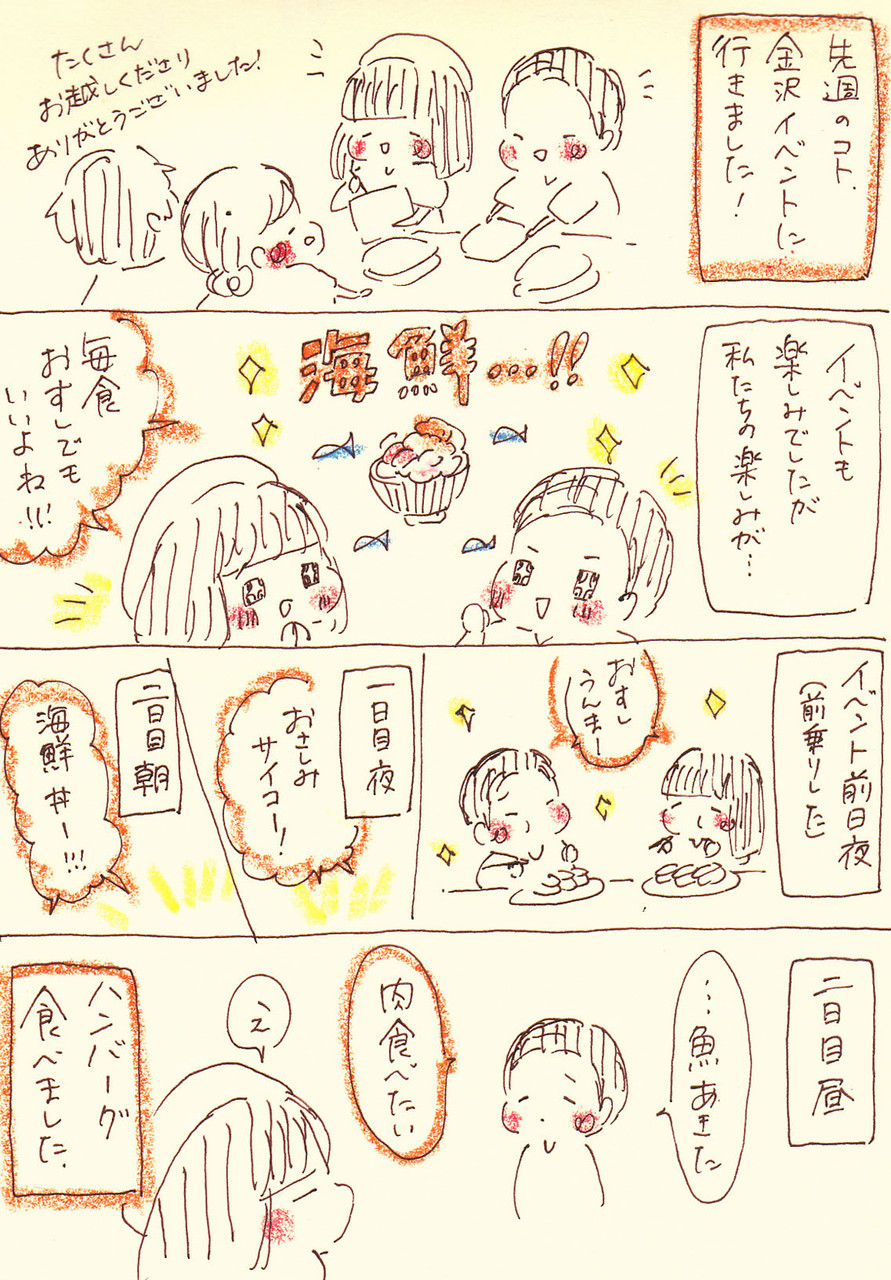 先週のコト、
金沢イベントに
行きました!
たくさん
お越しくださり
ありがとうございました!
イベントも
楽しみでしたが
私たちの楽しみが…
海鮮…!!
毎食
おすしでも
いいよね!!!
イベント前日夜
(前乗りした)
おすし
うんまー
一日目夜
おさしみ
サイコー!
二日目朝
海鮮丼ー!!!
二日目昼
…魚あきた
肉食べたい
え
ハンバーグ
食べました.